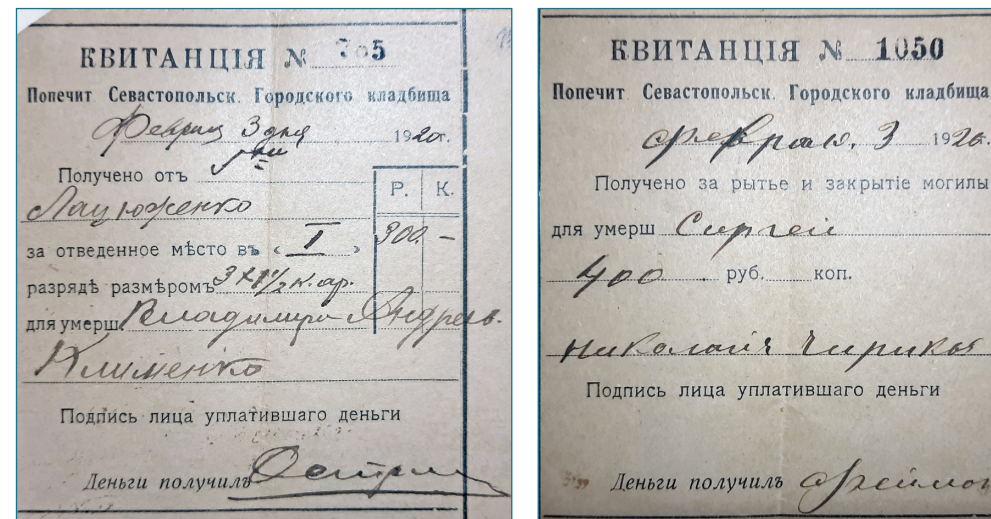 КВИТАНЦІЯ № 705
Попечит Севастопольск. Городского кладбища
3 дня 1920г.
Получено отъ
Р. К.
за отведенное мѣсто въ « I » 300. –
разрядѣ размѣромъ 3 × 1 1/2 к. ар.
для умерш Владимира Андреев.
Клименко
Подпись лица уплатившаго деньги
Деньги получилъ
КВИТАНЦІЯ № 1050
Попечит Севастопольск. Городского кладбища
февраля, 3 1920г.
Получено за рытье и закрытіе могилы
для умерш Сергей
400 руб. коп.
Николаич Чириков
Подпись лица уплатившаго деньги
Деньги получилъ